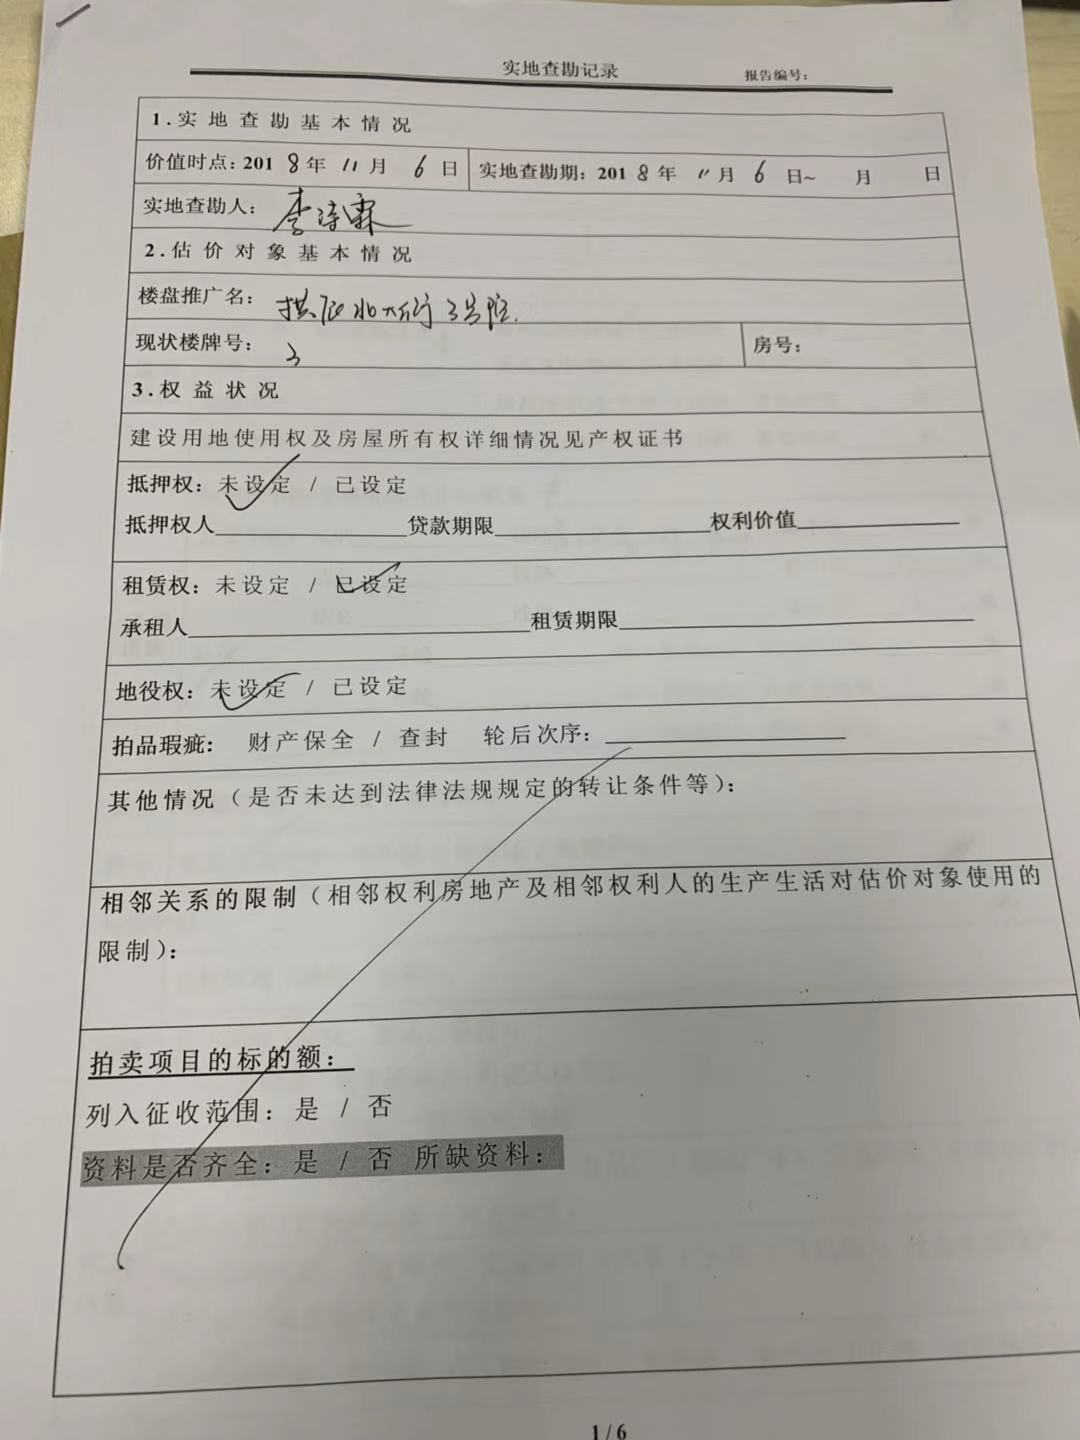 实地查勘记录 报告编号：
1.实地查勘基本情况
价值时点：2018年11月6日 实地查勘期：2018年11月6日~ 月 日
实地查勘人：李
2.估价对象基本情况
楼盘推广名：北大街3号院.
现状楼牌号：3 房号：
3.权益状况
建设用地使用权及房屋所有权详细情况见产权证书
抵押权：未设定 / 已设定
抵押权人 贷款期限 权利价值
租赁权：未设定 / 已设定
承租人 租赁期限
地役权：未设定 / 已设定
拍品瑕疵： 财产保全 / 查封 轮后次序：
其他情况（是否未达到法律法规规定的转让条件等）：
相邻关系的限制（相邻权利房地产及相邻权利人的生产生活对估价对象使用的
限制）：
拍卖项目的标的额：
列入征收范围：是 / 否
资料是否齐全：是 / 否 所缺资料：
1/6